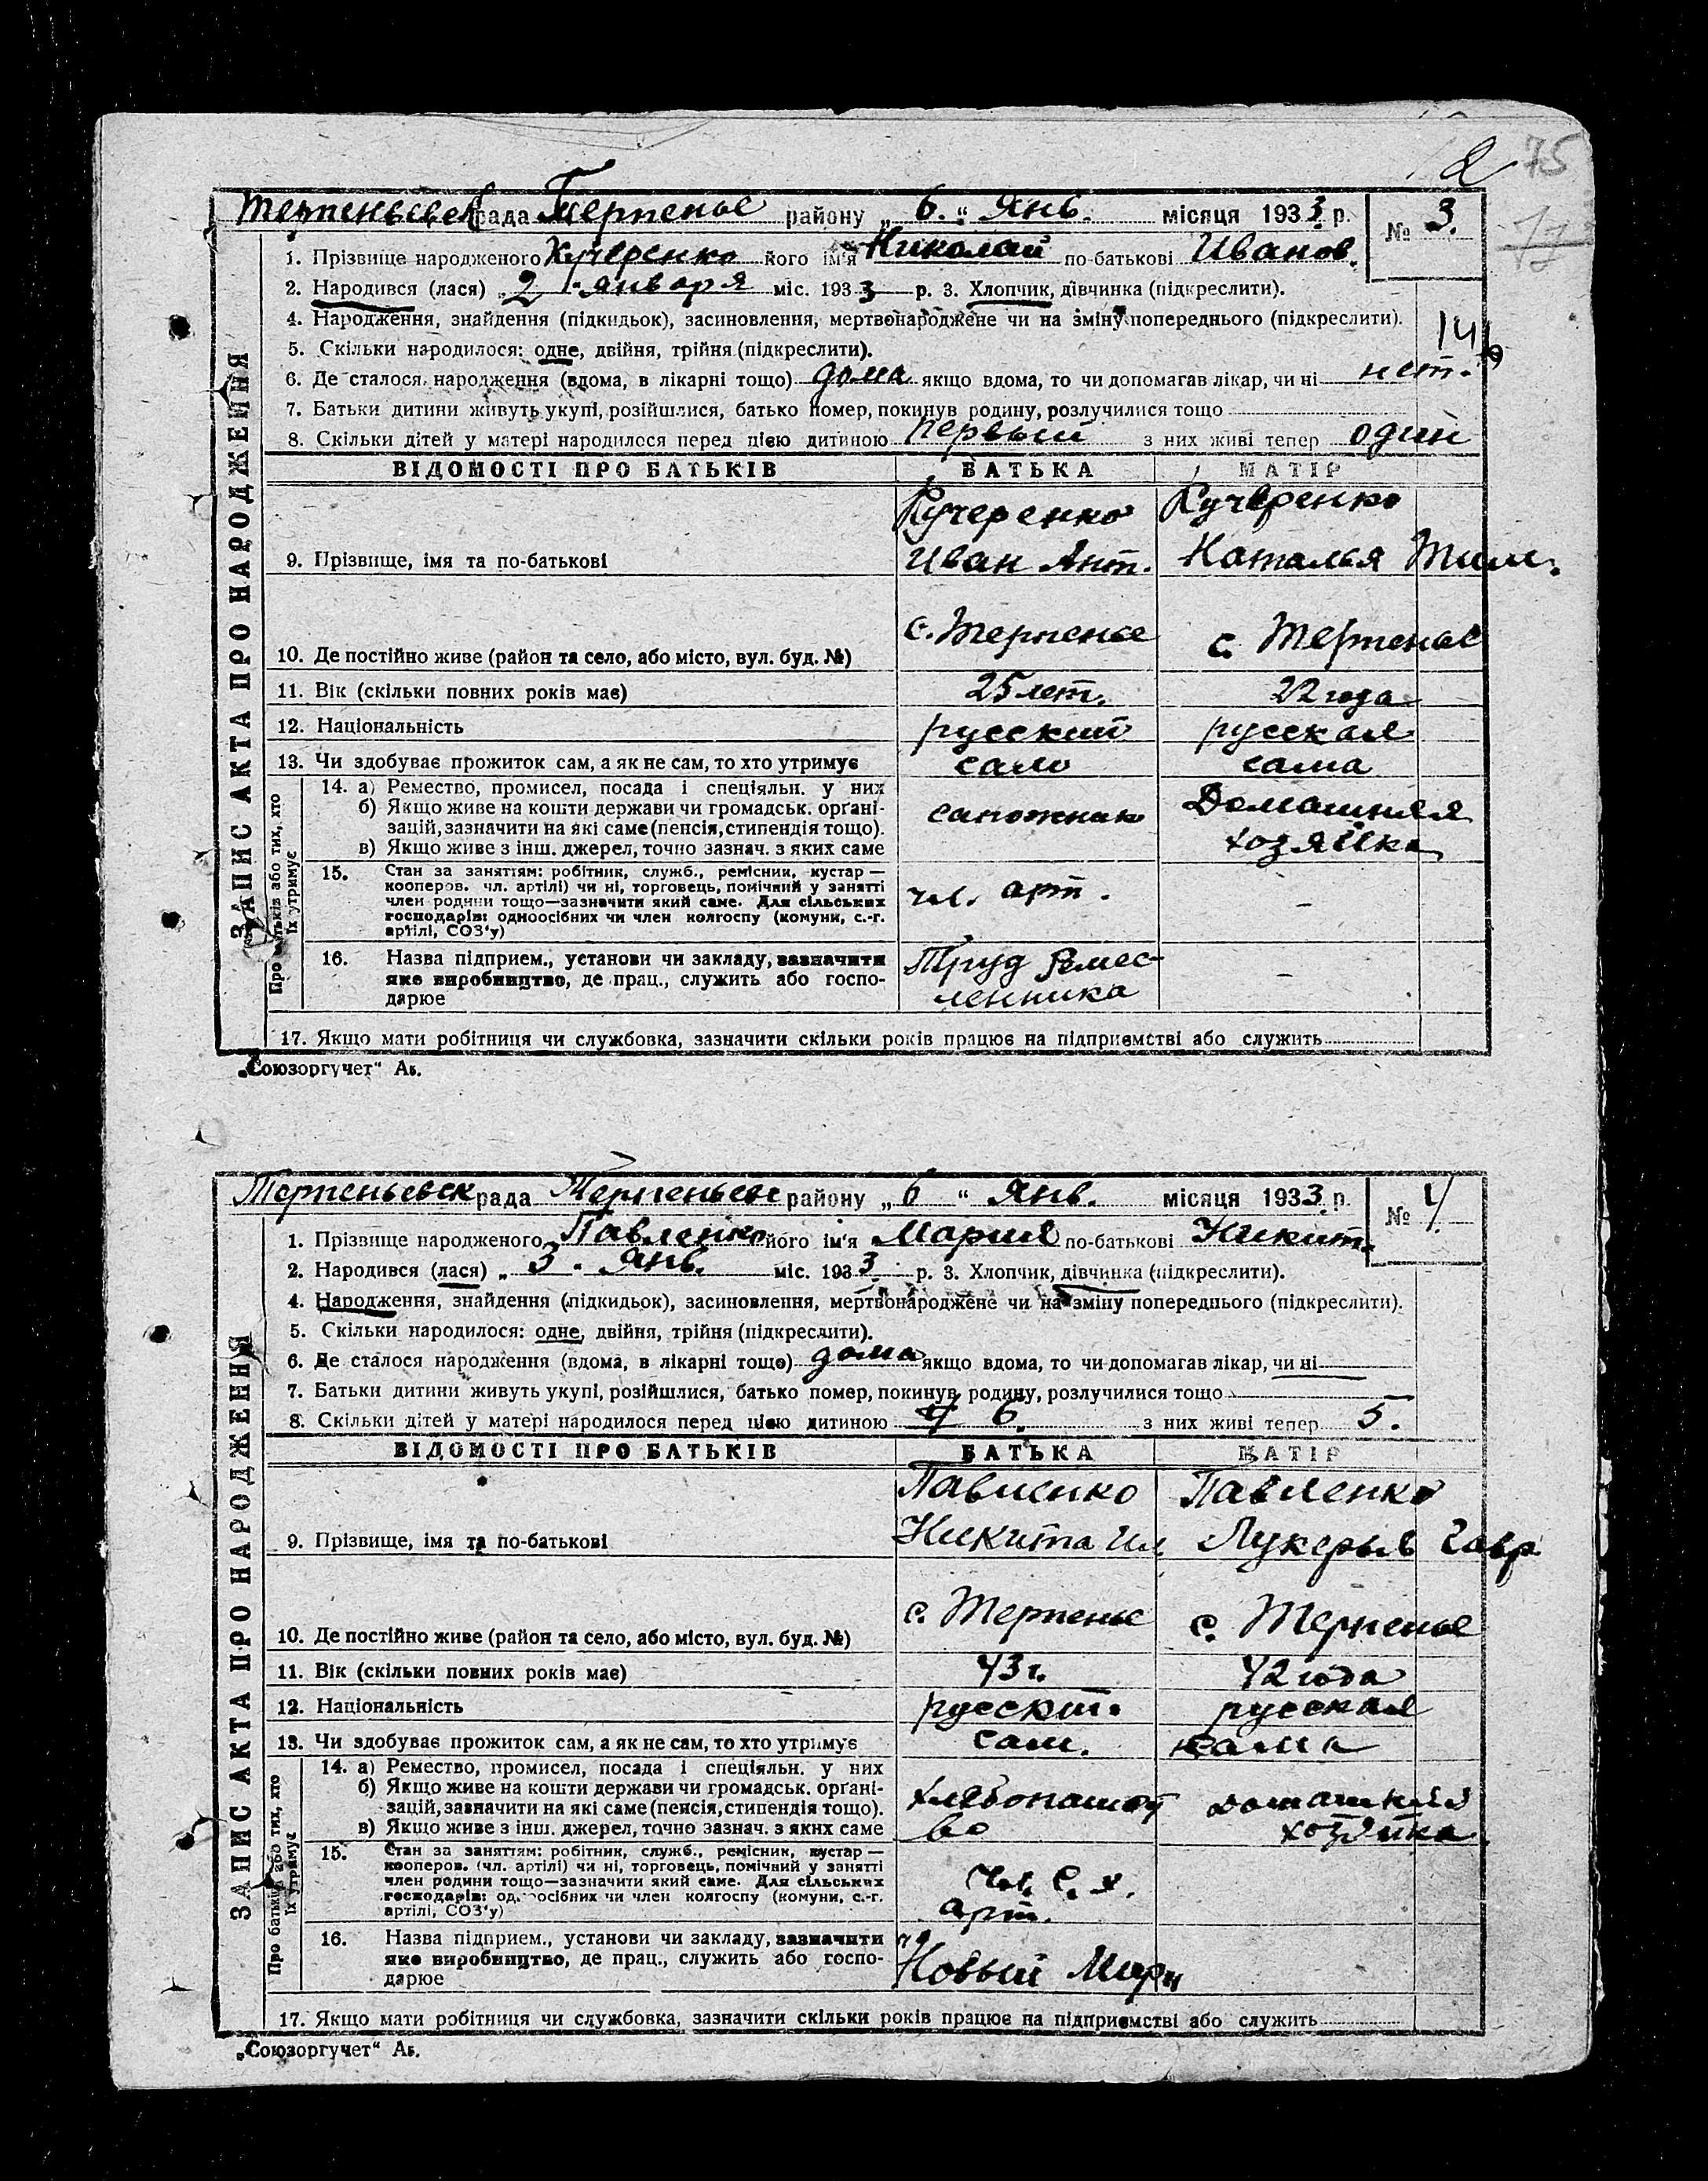 2 75
Терпеньевск рада Терпенье району „ 6. “ Янв. місяця 1933 р. № 3.
1. Прізвище народженого Кучеренко його ім'я Николай по-батькові Иванов.
2. Народився (лася) „ 2 “ января міс. 1933 р. 3. Хлопчик, дівчинка (підкреслити).
4. Народження, знайдення (підкидьок), засиновлення, мертвонароджене чи на зміну попереднього (підкреслити).
5. Скільки народилося: одне, двійня, трійня (підкреслити).
6. Де сталося народження (вдома, в лікарні тощо) дома якщо вдома, то чи допомагав лікар, чи ні нет.
7. Батьки дитини живуть укупі, розійшлися, батько помер, покинув родину, розлучилися тощо
8. Скільки дітей у матері народилося перед цією дитиною первый з них живі тепер один
ЗАПИС АКТА ПРО НАРОДЖЕННЯ
ВІДОМОСТІ ПРО БАТЬКІВ БАТЬКА МАТІР
Кучеренко Кучеренко
9. Прізвище, імя та по-батькові Иван Ант. Наталья Тим.
10. Де постійно живе (район та село, або місто, вул. буд. №) с. Терпенье с. Терпенье
11. Вік (скільки повних років має) 25 лет. 22 года
12. Національність русский русская
13. Чи здобуває прожиток сам, а як не сам, то хто утримує само сама
Про батьків або тих, хто їх утримує
14. а) Ремество, промисел, посада і спеціяльн. у них
б) Якщо живе на кошти держави чи громадськ. орґані-
зацій, зазначити на які саме (пенсія, стипендія тощо).
в) Якщо живе з інш. джерел, точно зазнач. з яких саме
сапожник Домашняя
хозяйка
15. Стан за заняттям: робітник, служб., ремісник, кустар —
кооперов. чл. артілі) чи ні, торговець, помічний у занятті
член родини тощо—зазначити який саме. Для сільських
господарів: одноосібних чи член колгоспу (комуни, с.-г.
артілі, СОЗ'у)
чл. арт. –
16. Назва підприєм., установи чи закладу, зазначити
яке виробництво, де прац., служить або госпо-
дарює
Труд Ремес-
ленника –
17. Якщо мати робітниця чи службовка, зазначити скільки років працює на підприємстві або служить
„Союзоргучет“ Ак.
Терпеньевск рада Терпеньевс району „ 6 “ Янв. місяця 1933 р. № 4
1. Прізвище народженого Павленко його ім'я Мария по-батькові Никит.
2. Народився (лася) „ 3 . Янв. міс. 1933 р. 3. Хлопчик, дівчинка (підкреслити).
4. Народження, знайдення (підкидьок), засиновлення, мертвонароджене чи на зміну попереднього (підкреслити).
5. Скільки народилося: одне, двійня, трійня (підкреслити).
6. Де сталося народження (вдома, в лікарні тощо) дома якщо вдома, то чи допомагав лікар, чи ні
7. Батьки дитини живуть укупі, розійшлися, батько помер, покинув родину, розлучилися тощо
8. Скільки дітей у матері народилося перед цією дитиною 6 з них живі тепер 5.
ЗАПИС АКТА ПРО НАРОДЖЕННЯ
ВІДОМОСТІ ПРО БАТЬКІВ БАТЬКА МАТІР
Павленко Павленко
9. Прізвище, імя та по-батькові Никита Ил. Лукерья Гавр
10. Де постійно живе (район та село, або місто, вул. буд. №) с. Терпенье с. Терпенье
11. Вік (скільки повних років має) 43 г. 42 года
12. Національність русский. русская
13. Чи здобуває прожиток сам, а як не сам, то хто утримує сам. сама
Про батьків або тих, хто їх утримує
14. а) Ремество, промисел, посада і спеціяльн. у них
б) Якщо живе на кошти держави чи громадськ. орґані-
зацій, зазначити на які саме (пенсія, стипендія тощо).
в) Якщо живе з інш. джерел, точно зазнач. з яких саме
домашняя
хозяйка
15. Стан за заняттям: робітник, служб., ремісник, кустар —
кооперов. (чл. артілі) чи ні, торговець, помічний у занятті
член родини тощо—зазначити який саме. Для сільських
господарів: одноосібних чи член колгоспу (комуни, с.-г.
артілі, СОЗ'у)
Чл. С. х.
арт.
16. Назва підприєм., установи чи закладу, зазначити
яке виробництво, де прац., служить або госпо-
дарює
Новый
17. Якщо мати робітниця чи службовка, зазначити скільки років працює на підприємстві або служить
„Союзоргучет“ Ак.